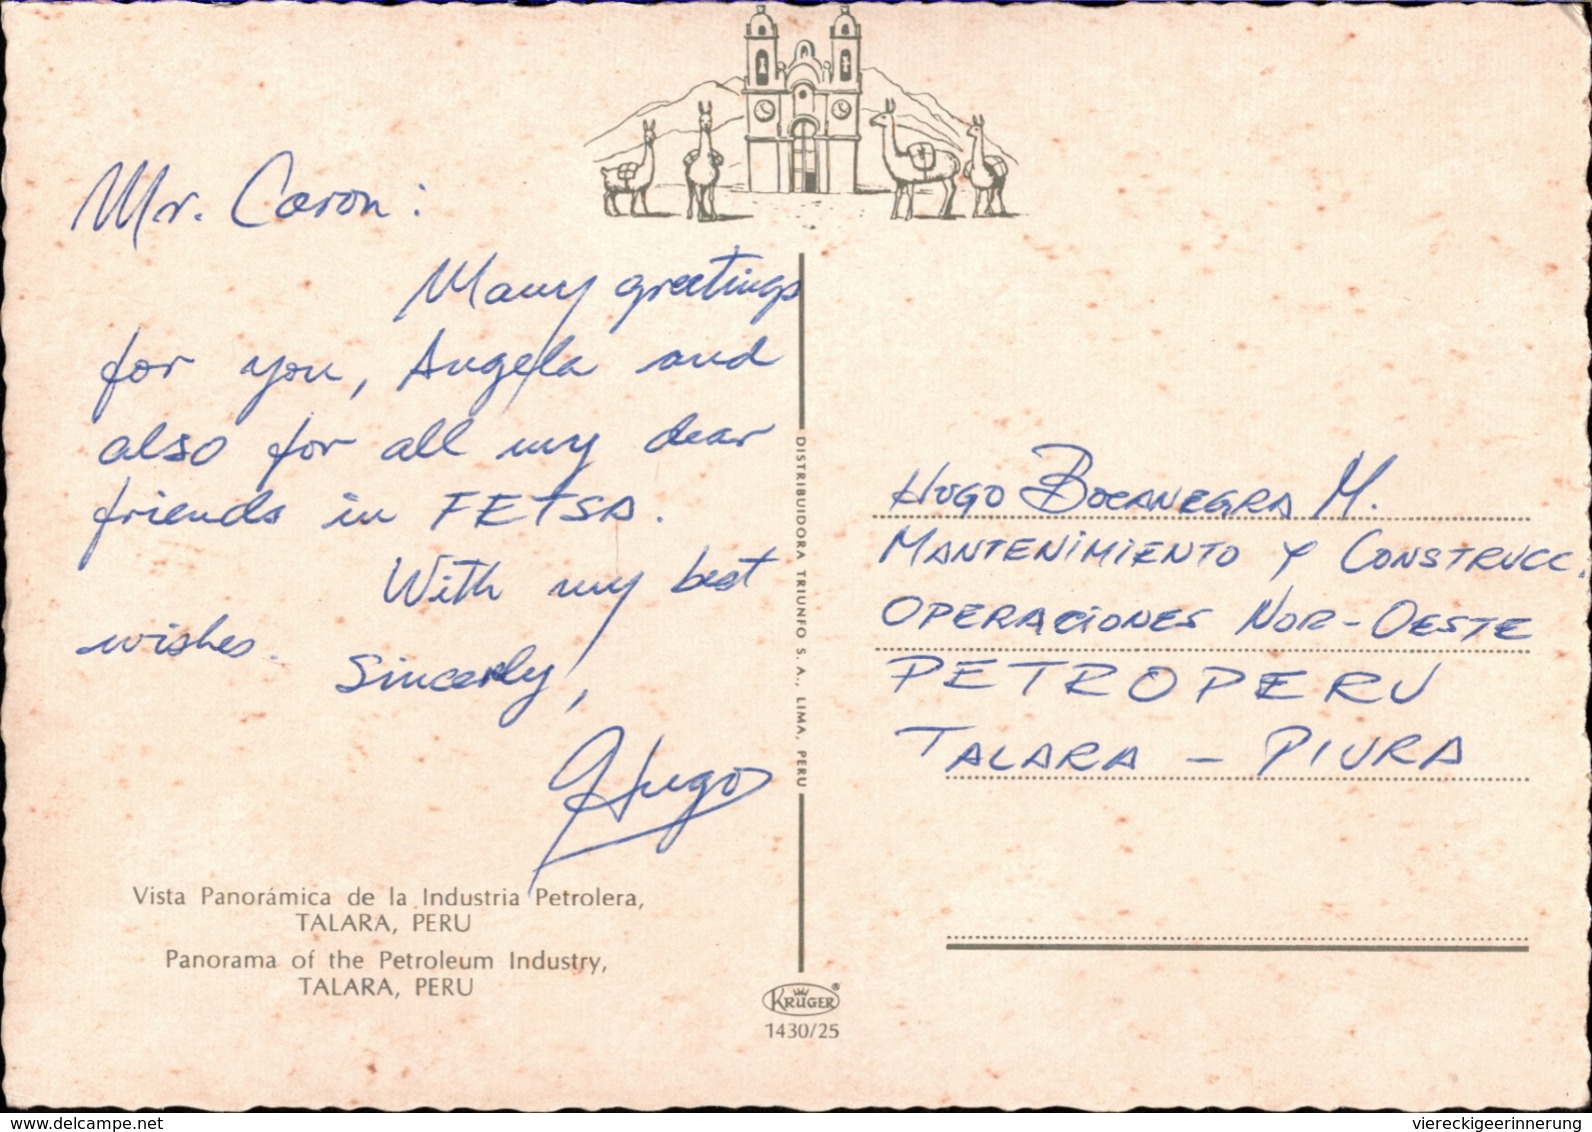 Mr. Caron:
Many greetings
for you, Angela and
also for all my dear
friends in FETSA.
With my best
wishes.
Sincerely,
Hugo
Vista Panorámica de la Industria Petrolera,
TALARA, PERU
Panorama of the Petroleum Industry,
TALARA, PERU
DISTRIBUIDORA TRIUNFO S. A., LIMA, PERU
KRÜGER®
1430/25
HUGO BOCANEGRA M.
MANTENIMIENTO Y CONSTRUCC.
OPERACIONES NOR-OESTE
PETROPERU
TALARA - PIURA
delcampe.net
viereckigeerinnerung